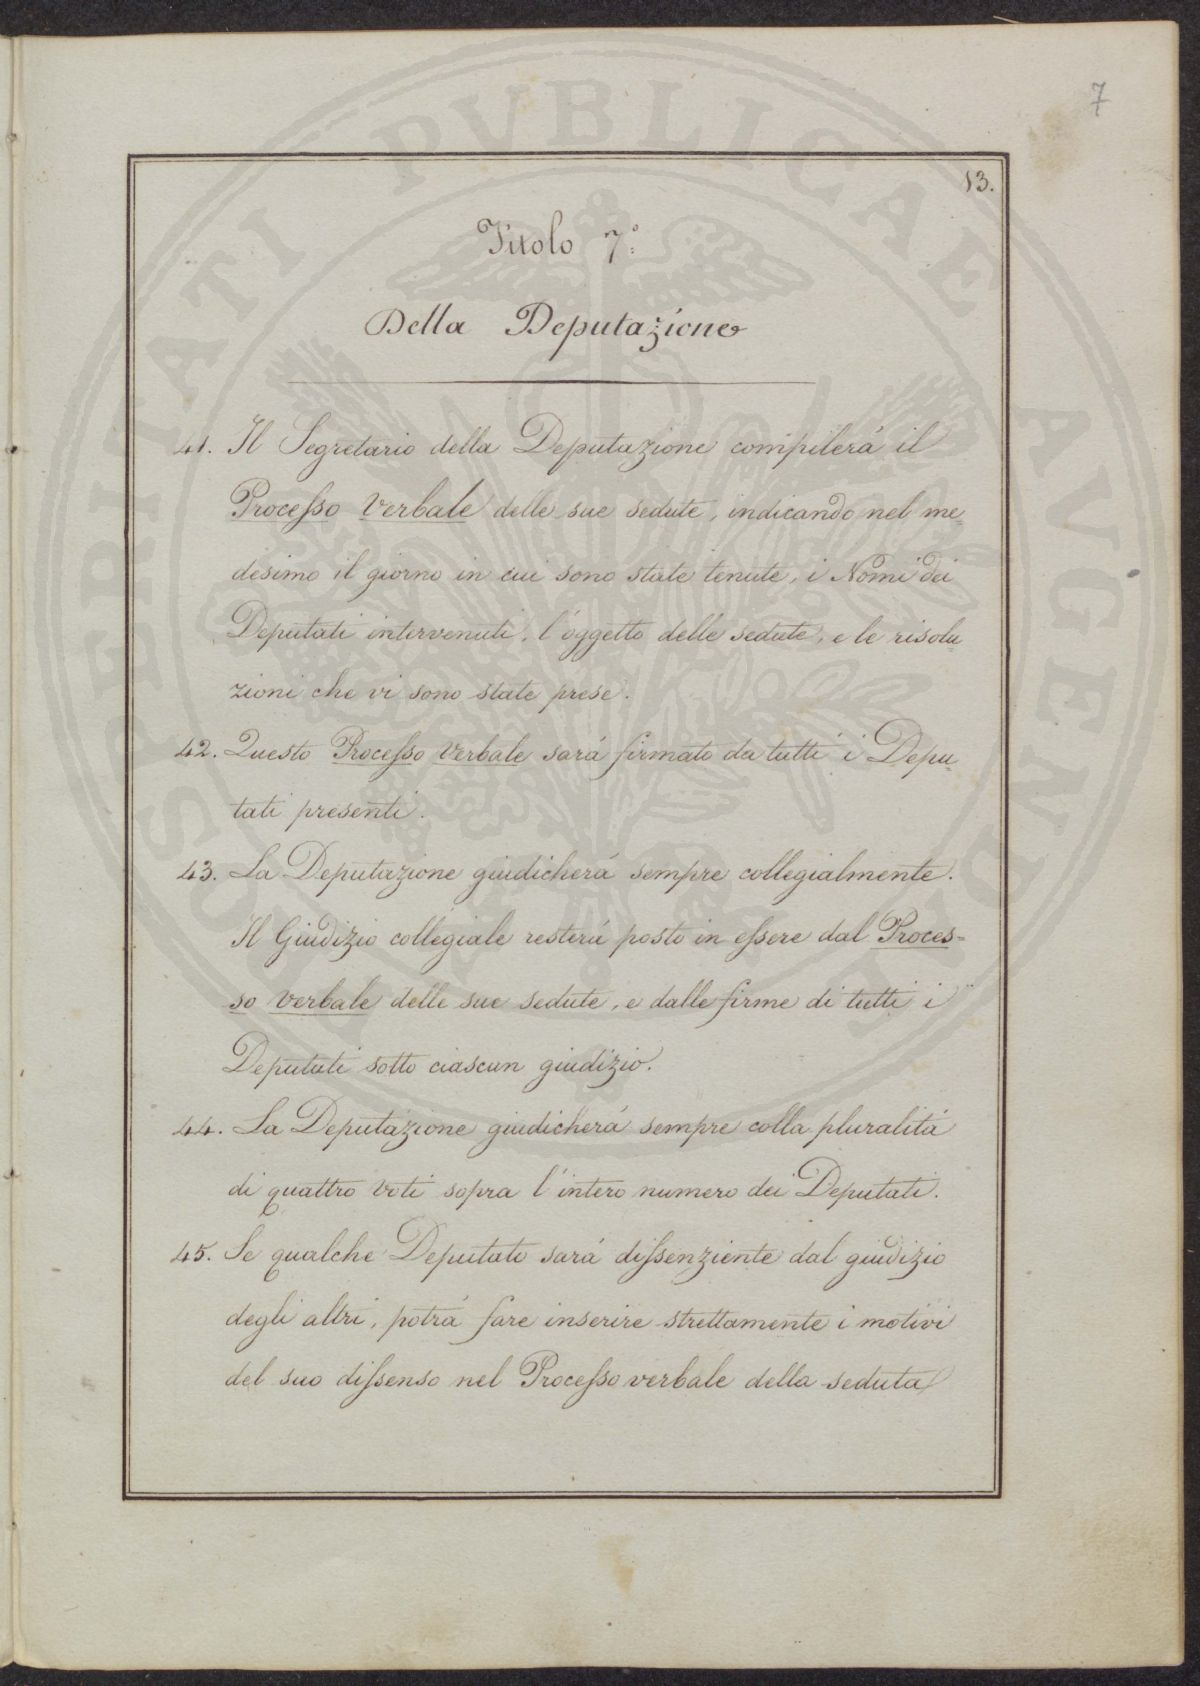 7
13.
Titolo 7.°
Della Deputazione
41. Il Segretario della Deputazione compilerá il
Processo Verbale delle sue sedute, indicando nel me=
desimo il giorno in cui sono state tenute, i Nomi dei
Deputati intervenuti, l'oggetto delle sedute, e le risolu=
zioni che vi sono state prese.
42. Questo Processo Verbale sará firmato da tutti i Depu=
tati presenti.
43. La Deputazione giudicherá sempre collegialmente.
Il Giudizio collegiale resterá posto in essere dal Proces=
so verbale delle sue sedute, e dalle firme di tutti i
Deputati sotto ciascun giudizio.
44. La Deputazione giudicherá sempre colla pluralitá
di quattro voti sopra l'intero numero dei Deputati.
45. Se qualche Deputato sará dissenziente dal giudizio
degli altri, potrá fare inserire strettamente i motivi
del suo dissenso nel Processo verbale della seduta
PROSPERITATI PVBLICAE AVGENDAE